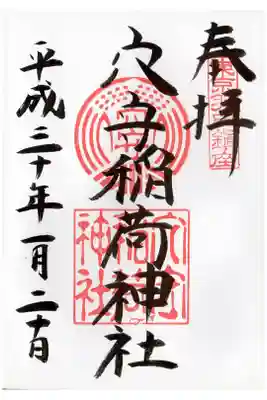 奉拝
東京羽田鎮座
穴守稲荷神社
穴守稲荷神社
平成三十年一月二十日